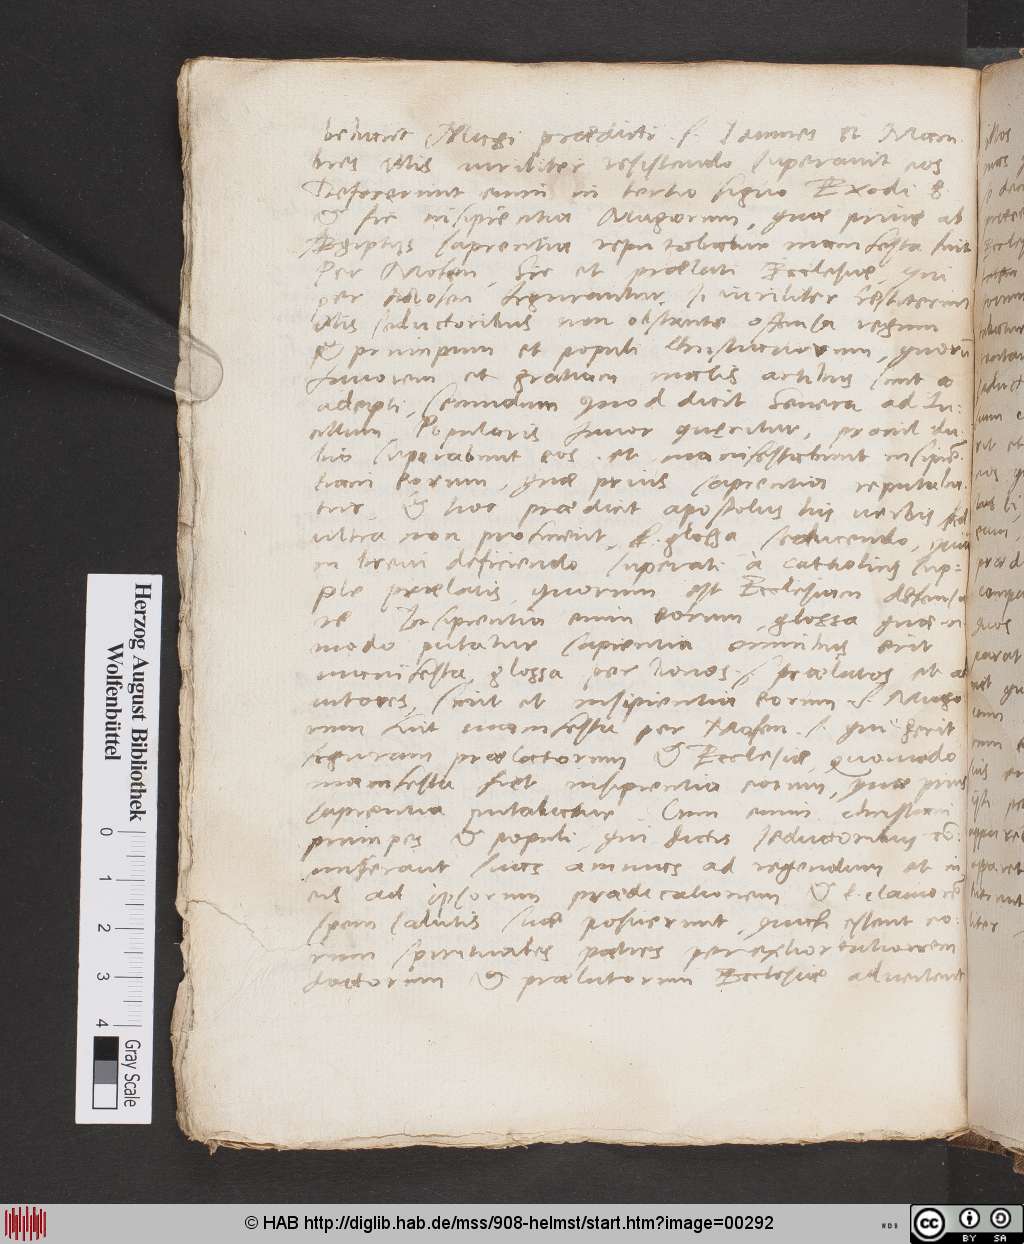 Magi prædicti .s. Iannes et Mam
bres illis viriliter resistendo superavit eos
Defecerunt enim in tertio signo Exodi 8
& sic insipientia Magorum, quæ prius ab
Ægiptijs sapientia reputabatur manifesta fuit
Per Mosen, Sic et prælati Ecclesiæ, qui
per Mosen figurantur, si viriliter restiterint
illis seductoribus non obstante offensa regum
& principum et populi Christianorum, quorū
favorem et gratiam malis artibus sunt
adepti, secundum quod dicit Seneca ad Lu:
cillum Popularis favor quęritur, procul du:
bio superabunt eos et manifestabunt insipiē:
tiam eorum, quæ prius sapientia reputaba
tur. & hoc prædicit apostolus his verbis sed
ultra non proficient, glossa seducendo, quia
in brevi deficiendo superati à catholicis
prælatis, quorum est Ecclesiam defensa
re Insipientia enim eorum, glossa quæ
modo putatur sapientia omnibus erit
manifesta, glossa per bonos .s. prælatos et
sicut et insipientia eorum .s. Mago
rum fuit manifesta per Mosen .s. qui gerit
figuram prælatorum & Ecclesiæ, quomodo
manifesta fiet insipientia eorum, quæ prius
sapientia putabatur Cum enim christiani
principes & populi, qui dictis seductoribus cō:
miserant suas animas ad regendum et in
eis ad ipsorum prædicationem &
spem salutis suæ posuerunt, quasi essent eo:
rum spirituales patres per exhortationem
doctorum & prælatorum Ecclesiæ advertent
Herzog August Bibliothek
Wolfenbüttel
0 1 2 3 4
Gray Scale
© HAB http://diglib.hab.de/mss/908-helmst/start.htm?image=00292
WDB
CC BY SA